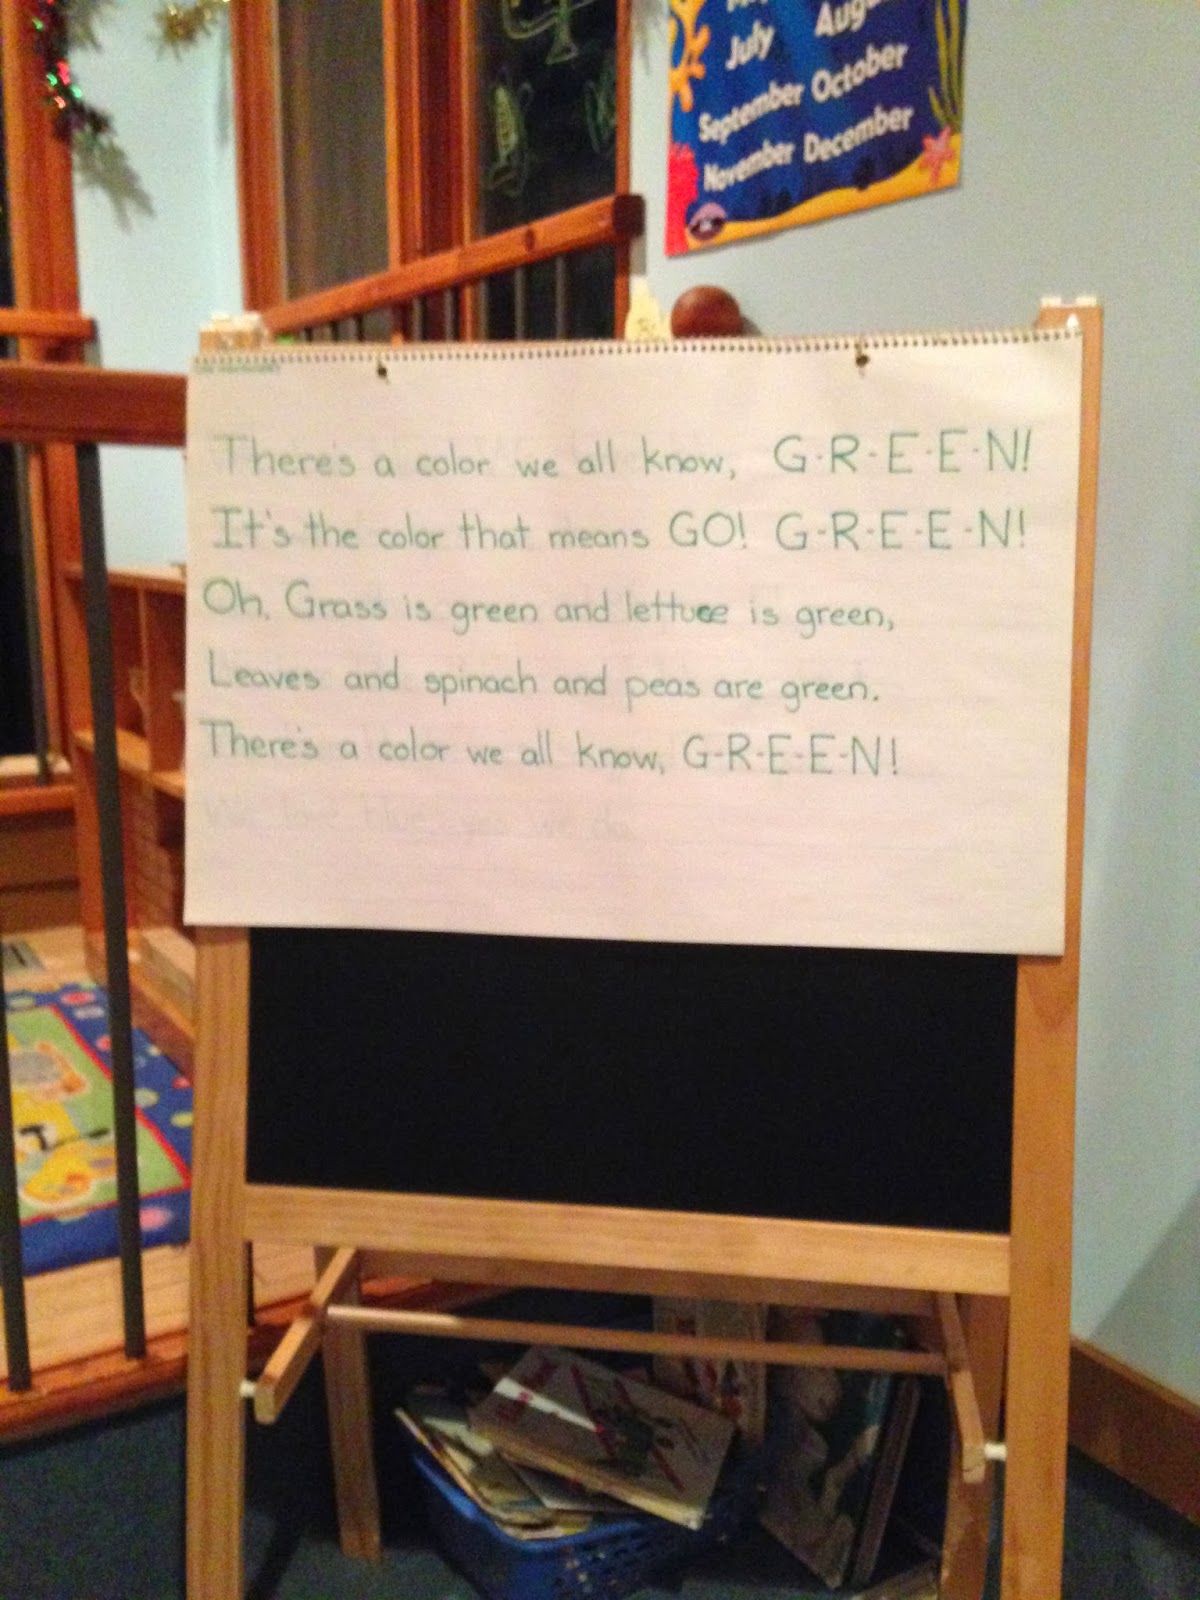 July
September October
November December
There's a color we all know, G-R-E-E-N!
It's the color that means GO! G-R-E-E-N!
Oh, Grass is green and lettuce is green,
Leaves and spinach and peas are green.
There's a color we all know, G-R-E-E-N!